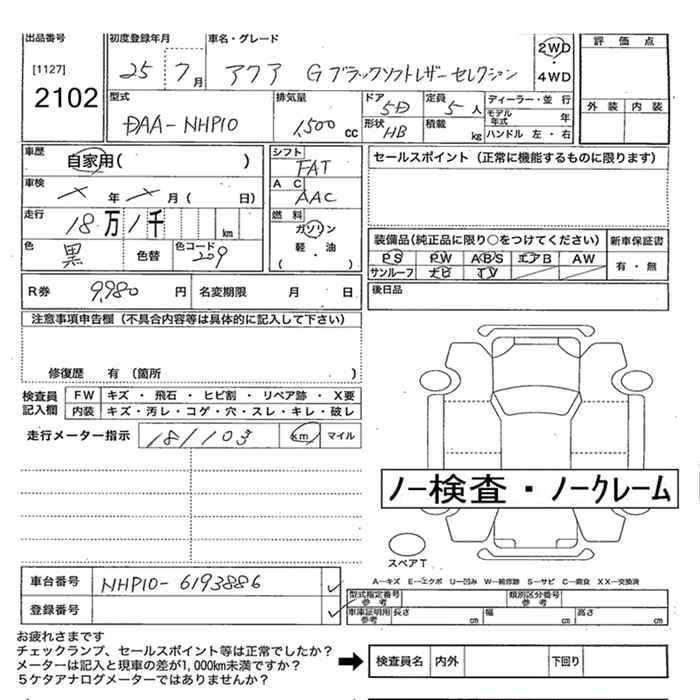 出品番号 初度登録年月 車名・グレード 評価点
[1127] 25 7月 アクア Gブラックソフトレザーセレクション 2WD・4WD
2102 外装 内装
型式 排気量 ドア 5D 定員 5人 ディーラー・並行
DAA-NHP10 1,500cc 形状 HB 積載 kg モデル年式 年
ハンドル 左・右
車歴 自家用( ) シフト FAT セールスポイント(正常に機能するものに限ります)
車検 ×年×月(日) AC AAC
走行 18万1千 km 燃料 ガソリン 軽・油 ( )
装備品(純正品に限り○をつけてください) 新車保証書
色 黒 色替 色コード 209 PS PW ABS エアB AW 有・無
サンルーフ ナビ TV
R券 9,980円 名変期限 月 日 後日品
注意事項申告欄(不具合内容等は具体的に記入して下さい)
修復歴 有(箇所 )
検査員記入欄 FW キズ・飛石・ヒビ割・リペア跡・X要
内装 キズ・汚レ・コゲ・穴・スレ・キレ・破レ
走行メーター指示 181103 km マイル
ノー検査・ノークレーム
スペアT
A―キズ E―エクボ U―凹み W―補修跡 S―サビ C―腐食 XX―交換済
車台番号 NHP10-6193886
型式指定番号参考 類別区分番号参考
登録番号
車庫証明用参考 長さ cm 幅 cm 高さ cm
お疲れさまです
チェックランプ、セールスポイント等は正常でしたか?
メーターは記入と現車の差が1,000km未満ですか?
5ケタアナログメーターではありませんか?
検査員名 内外 下回り